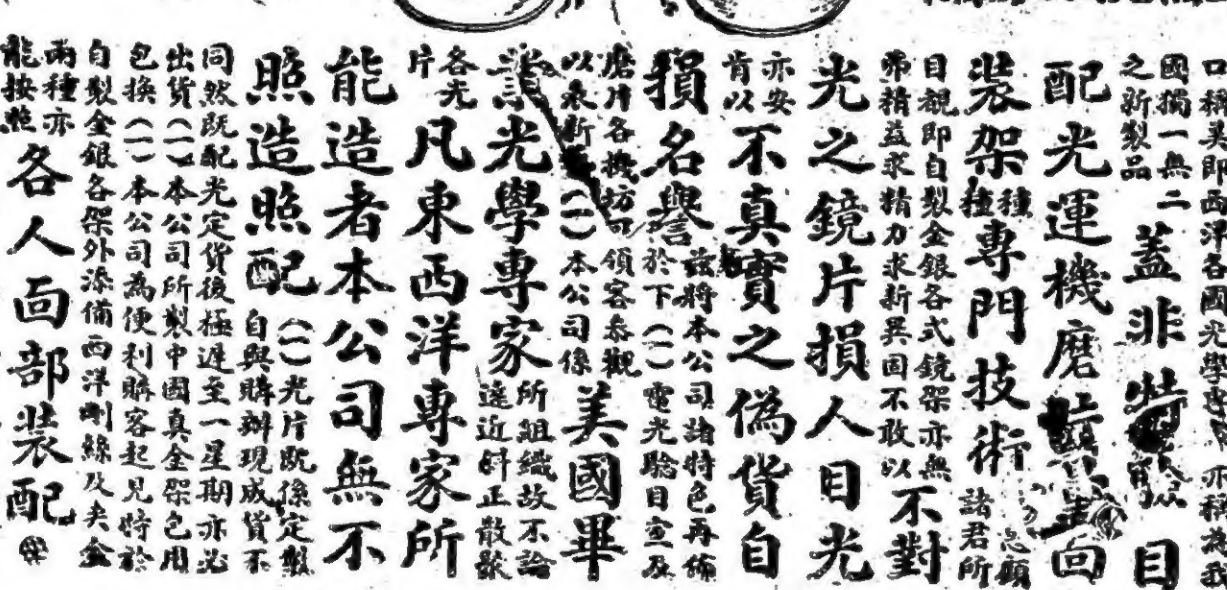 稱美即西洋各國光學專亦稱為我
國獨一無二
之新製品
蓋非特目
配光運機磨面
裝架
種種
專門技術
顧
諸君所
目覩即自製金銀各式鏡架亦無
弗精益求精力求新異固不敢以
不對
光之鏡片損人目光
亦安
肯以
不真實之偽貨自
損名譽
茲將本公司諸特色再佈
於下（一）電光驗目室及
磨片各機坊可領客參觀
以表新（一）本公司係
美國畢
業光學專家
所組織故不論
遠近斜正散歛
各光
片
凡東西洋專家所
能造者本公司無不
照造照配
（一）光片既係定製
自與購辦現成貨不
同然既配光定貨後極遲至一星期亦必
出貨（一）本公司所製中國真金架包用
包換（一）本公司為便利購客起見特於
自製金銀各架外添備西洋剛絲及夾金
兩種亦
能按照
各人面部裝配